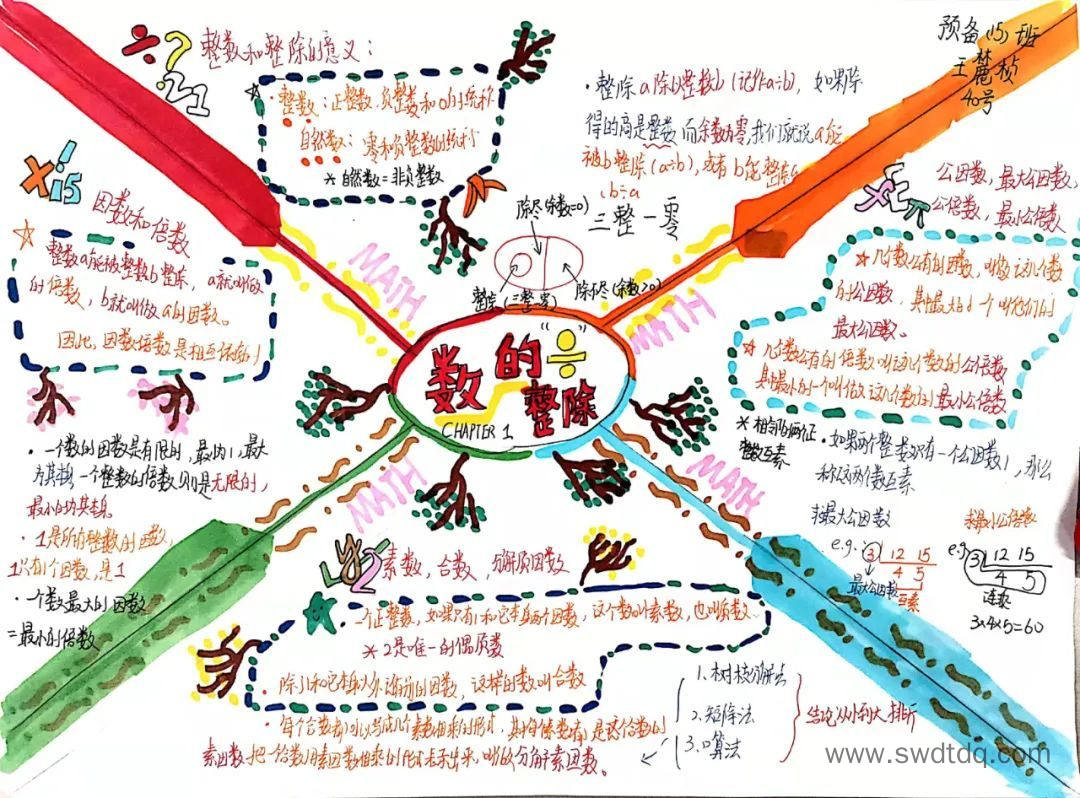 预备(5)班
王麓桢
40号
整数和整除的意义:
·整数:正整数、负整数和0的统称
自然数:零和负整数的统称
*自然数=非负整数
·整除a除以整数b(记作a÷b),如果除
得的商是整数而余数为零,我们就说a能
被b整除(a÷b),或者b能整除a
b÷a
三整一零
除尽(余数=0)
整除(三整一零)
除不尽(余数>0)
因数和倍数
整数a能被整数b整除,a就叫做
b的倍数,b就叫做a的因数。
因此,因数倍数是相互依存的
·一个数的因数是有限的,最小为1,最大
为其本身 一个整数的倍数则是无限的,
最小的为其本身
·1是所有整数的因数,
1只有1个因数,是1
·一个数最大的因数
=最小的倍数
MATH
MATH
MATH
MATH
数的"÷"
整除
CHAPTER 1
公因数,最大公因数,
公倍数,最小公倍数
几个数公有的因数,叫做这几个数
的公因数,其中最大的一个叫他们的
最大公因数。
几个数公有的倍数叫这几个数的公倍数
其中最小的一个叫做这几个数的最小公倍数
*相邻的两个正
整数互素
·如果两个整数只有一个公因数1,那么
称这两个数互素
求最大公因数
e.g: 3 12 15
4 5
最大公因数 互素
求最小公倍数
e.g 3 12 15
4 5
连乘
3×4×5=60
素数,合数,分解质因数
·一个正整数,如果只有1和它本身两个因数,这个数叫素数,也叫质数
*2是唯一的偶质数
·除了1和它本身以外还有别的因数,这样的数叫合数
·每个合数都可以写成几个素数相乘的形式,其中每个素数都是这个合数的
素因数 把一个合数用素因数相乘的形式表示出来,叫做分解素因数。
1.树枝分解法
2.短除法
3.口算法
结论从小到大排折
www.swdtdq.com